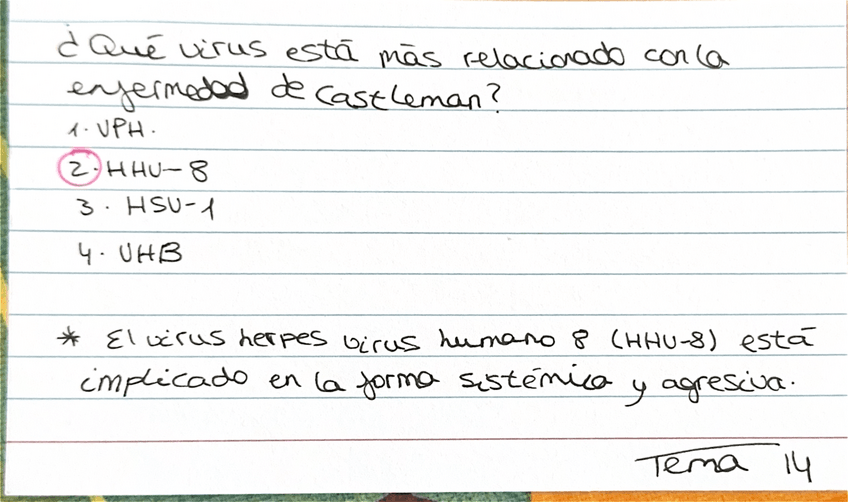 ¿Qué virus está más relacionado con la
enfermedad de Castleman?
1. VPH.
2. HHV-8
3. HSV-1
4. VHB
* El virus herpes virus humano 8 (HHV-8) está
implicado en la forma sistémica y agresiva.
Tema 14